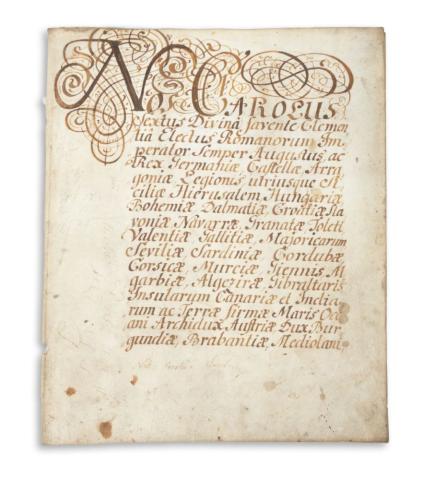 NOS CAROLUS
Sextus Divinâ favente Clemen
tiâ Electus Romanorum Im
perator Semper Augustus, ac
Rex Germaniæ, Castellæ, Arra
goniæ Legionis utriusque Si
ciliæ Hierusalem, Hungariæ
Bohemiæ Dalmatiæ Croatiæ Sla
voniæ Navarræ, Granatæ Toleti
Valentiæ, Gallitiæ, Majoricarum
Seviliæ Sardiniæ Cordubæ
Corsicæ, Murciæ, Giennis Al
garbiæ, Algeziræ, Gibraltaris
Insularum Canariæ et India
rum ac Terræ firmæ Maris Oce
ani Archidux Austriæ Dux Bur
gundiæ, Brabantiæ, Mediolani,